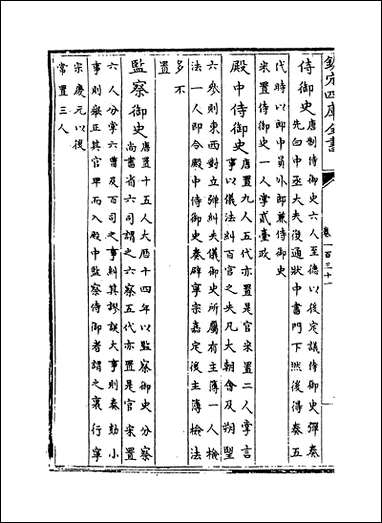 欽定四庫全書
卷一百三十一
侍御史
唐制侍御史六人至德以後定議侍御史彈奏
先白中丞大夫復通狀中書門下然後得奏五
代時以郎中員外郎兼侍御史
宋置侍御史一人掌貳臺政
殿中侍御史
唐置九人五代亦置是官宋置二人掌言
事以儀法糾百官之失凡大朝會及朔望
六參則東西對立彈糾失儀御史所屬有主簿一人檢
法一人即令殿中侍御史奏辟寧宗嘉定後主簿檢法
多不
置
監察御史
唐置十五人大厯十四年以監察御史分察
尚書省六司謂之六察五代亦置是官宋置
六人分掌六曹及百司之事糾其謬誤大事則奏劾小
事則舉正其官卑而入殿中監察侍御者謂之裏行寧
宗慶元以後
常置三人